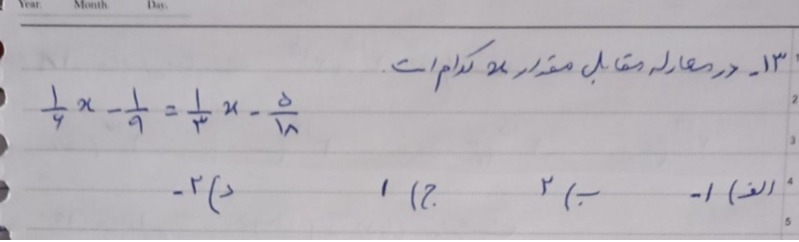 Year. Month. Day.
۱۳- در معادله مقابل مقدار x کدام است.
۱/۶ x - ۱/۹ = ۱/۳ x - ۵/۱۸
الف) ۱- ب) ۲ ج) ۱ د) ۲-
1
2
3
4
5